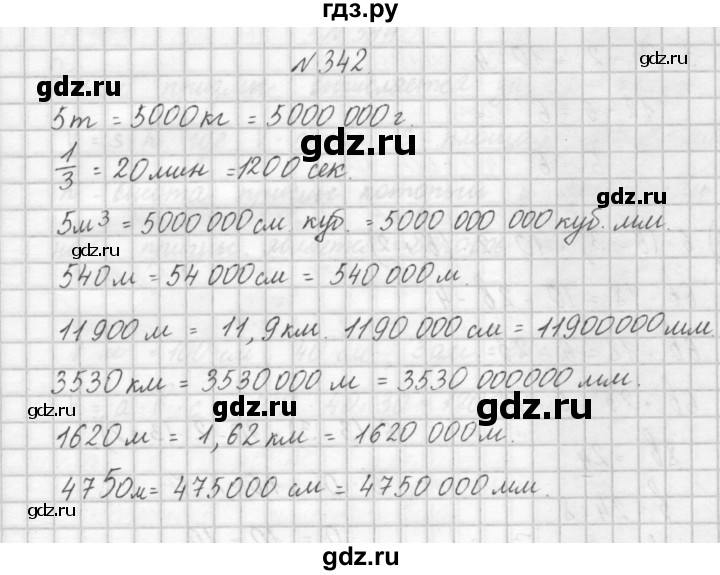 гдз.ру
№342
gdz.ru
gdz.ru
5т = 5000кг = 5000 000г.
gdz.ru
1/3 = 20мин =1200 сек.
gdz.ru
5м³ = 5000 000см куб. = 5000 000 000куб. мм.
gdz.ru
gdz.ru
540м = 54 000см = 540 000м.
gdz.ru
11900м = 11,9км. 1190 000см = 11900000мм.
gdz.ru
3530км = 3530000 м = 3530 000000мм.
gdz.ru
gdz.ru
1620м = 1,62км = 1620 000м.
gdz.ru
4750м= 475000 см = 4750 000мм.
gdz.ru
gdz.ru